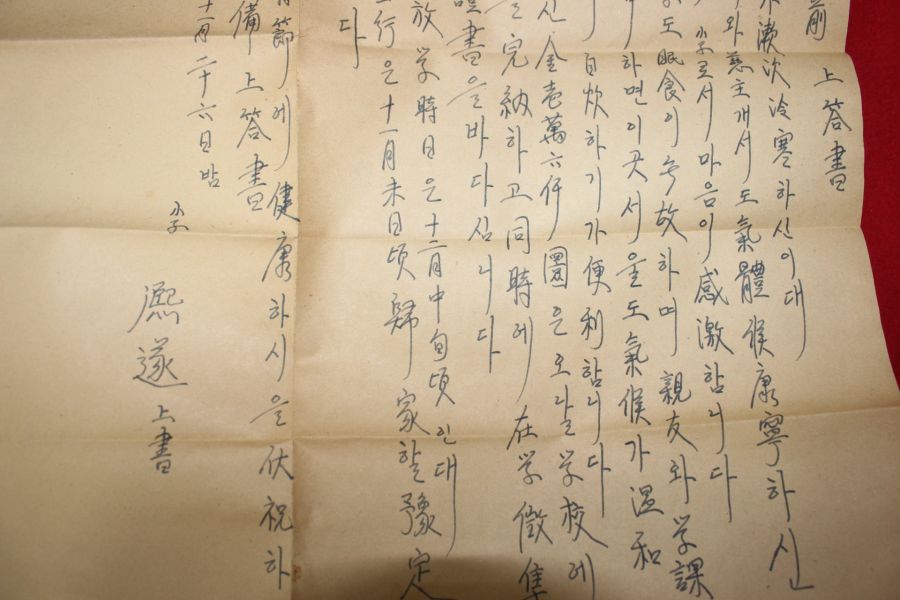 前
上答書
漱次冷寒하신이대
와慈主개서도氣體候康寧하신
小子로서마음이感激합니다
도眠食이무故하며親友와学課
하면이곳서울도氣候가温和
自炊하기가便利합니다
신金壱萬六仟圜은오날学校에
完納하고同時에在学徵集
書을바다십니다
放学時日은十二月中旬頃인대
行은十一月末日頃歸家할豫定
다
節에健康하시을伏祝하
備上答書
十一月二十六日밤
小子
熙遂上書